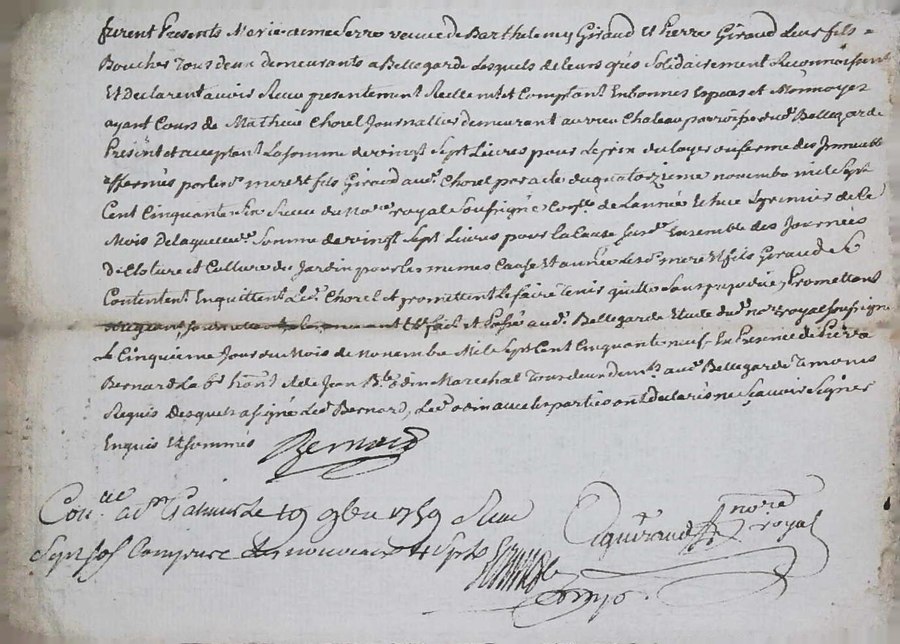 furent Presents Marie aimé Serre veuve de Barthelemy Giraud et Pierre Giraud leur fils
Boucher tous deux demeurants a Bellegarde Lesquels de leurs grés Solidairement Reconnoissent
Et Declarent avoir Receu presentement Reellemt et Comptant En bonnes Especes et Monnoyes
ayant Cours de Mathieu Chorel Journallier demeurant au vieu Chateau parroisse dud. Bellegarde
Présent et acceptant La somme de vingt Sept Livres pour Le prix du loyer ou ferme des Immeubles
affermés par lesd. mere et fils Giraud aud. Chorel par acte du quatorzieme novembre mil Sept
Cent Cinquante Six Receu du Nore royal Soussigné de Lannée Echue Le premier de Ce
Mois De laquelle Somme de vingt Sept Livres pour la Cause susd. Ensemble des Journées
De Cloture et Culture du Jardin pour les memes Cause Et année Lesd. mere Et fils Giraud Se
Contentent En quittent Led. Chorel et promettent Le faire tenir quitte Sans prejudice Promettant
Et fait et Passé aud. Bellegarde Etude dud. nore royal Soussigné
Le Cinquieme Jour du Mois de novembre Mil Sept Cent Cinquante neuf En Presence de Pierre
Bernard La et de Jean Bte odin Marechal Tous deux demts aud. Bellegarde Temoins
Requis Desquels a signé Led. Bernard, Led. odin aussi les parties ont declaré ne Sçavoir Signer
Enquis Et Sommés Bernard
Con.lle a St Galmier Le 19 9bre 1759 Reçu
Sept sols Compris Les nouveaux 4 s. pr. L.
nore
royal